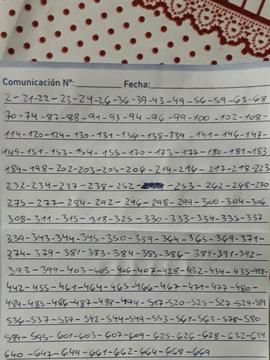 Comunicación Nº: Fecha:
2-21-22-23-24-26-36-39-43-49-56-59-63-68
70-74-87-88-91-93-94-96-99-100-102-108-
114-120-124-130-131-134-138-139-141-146-147-
149-151-153-154-155-170-173-177-180-181-183
184-198-202-203-205-206-214-216-217-218-223
232-234-237-238-252-253-262-268-270
275-277-284-292-296-298-299-300-304-306
308-311-315-318-325-330-333-334-335-337
339-343-344-345-350-359-364-365-369-371-
374-379-381-383-384-385-386-389-391-392-
393-399-403-405-406-407-428-432-434-435-438-
442-455-461-464-465-466-467-471-477-480-
484-485-486-487-488-494-517-520-525-527-529-531
536-537-539-542-544-549-553-561-563-578-580
584-595-601-603-607-609-625-626-628-632-634
640-647-649-661-662-664-668-669